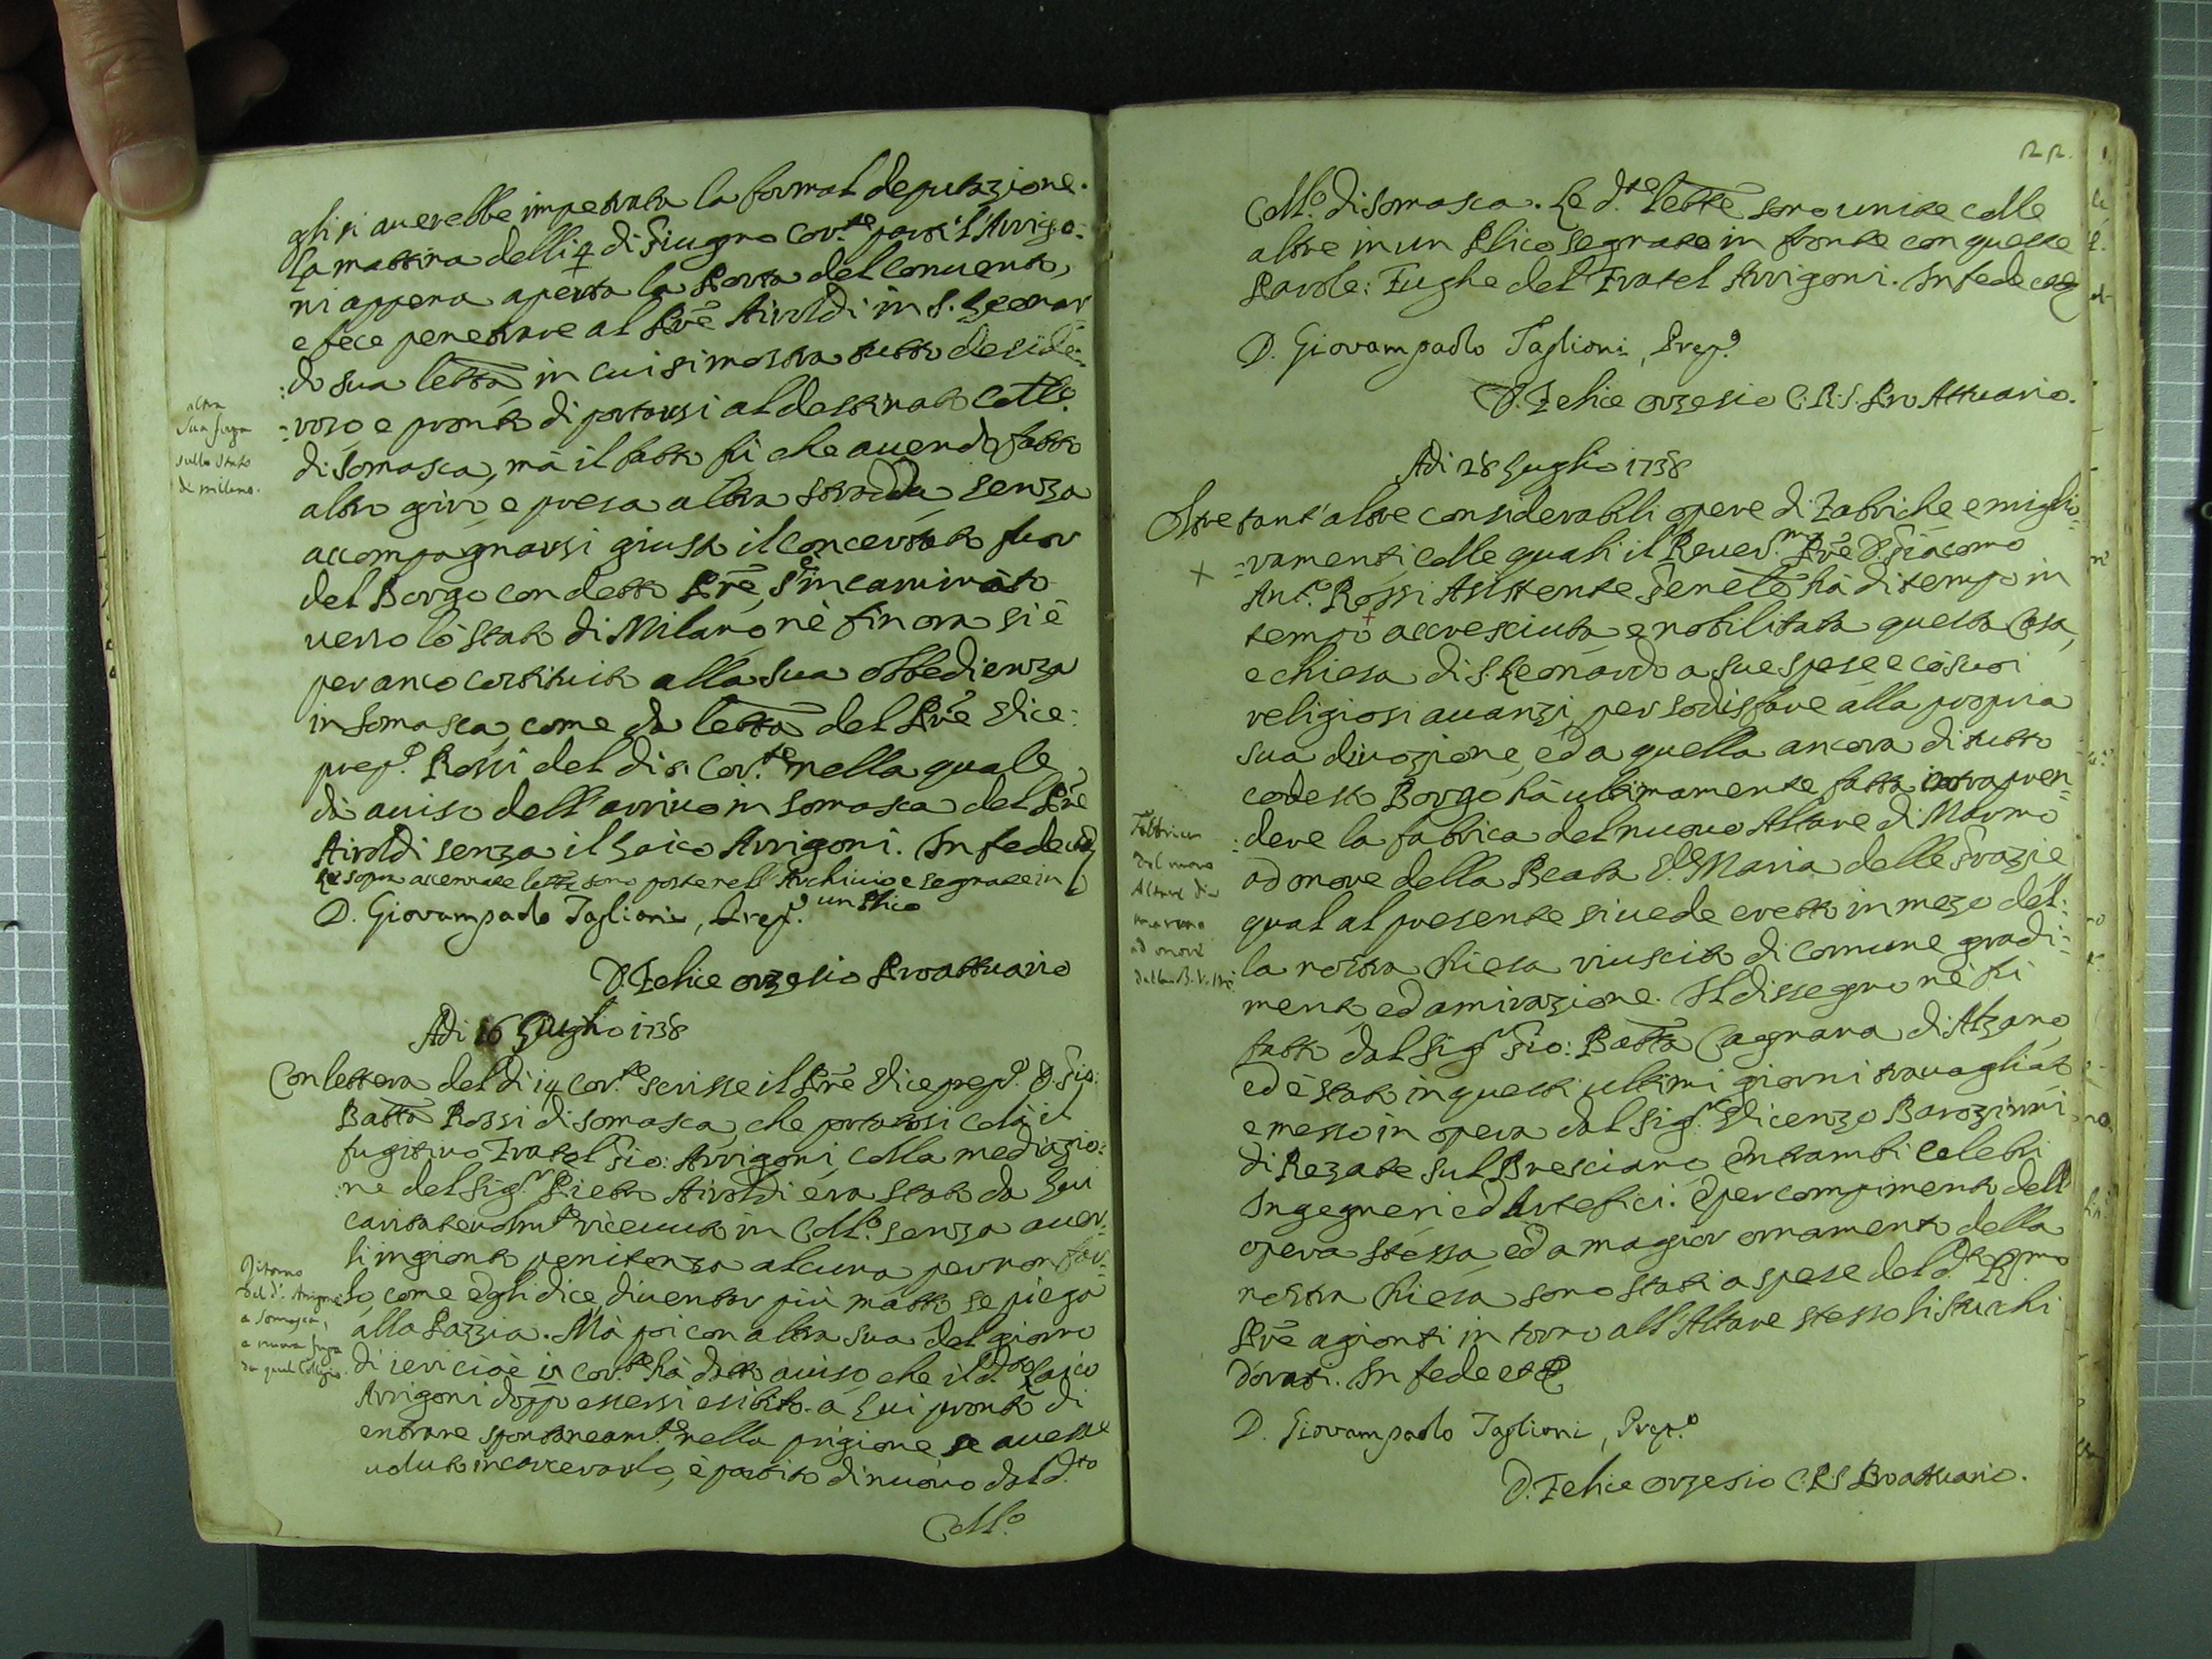 gli si averebbe impetrata la formal deputazione.
La mattina delli 4 di Giugno Cor.te partì l'Arrigo:
ni appena aperta la Porta del Convento,
e fece penetrare al Prē Airoldi in S. Leonar
:do sua lettā in cui si mostra tutto deside:
:roso e pronto di portarsi al destinato Coll.o
di Somasca, mà il fatto fù che avendo fatto
altro giro e presa altra stradda, senza
accompagnarsi giusta il concertato fuor
del Borgo con detto Prē, s'è incaminato
verso lo stato di Milano, nè fin ora si è
per anco costituito alla sua obbedienza
in Somasca, come da lettā del Prē Vice:
prep.o Rossi del di 8 Cor.te nella quale
dà aviso dell'arrivo in Somasca del Prē
Airoldi senza il Laico Arrigoni. In fede
Le sopra accennate lettē sono poste nell'Archivio e segnate in
un Plico
D. Giovampaolo Taglioni, Prep.o
D. Felice Orzesio Proattuario
altra
sua fuga
sullo Stato
di Milano.
Adi 16 Luglio 1738
Con lettera del di 14 Cor.te scrisse il Prē Viceprep.o D. Gio:
Battā Rossi di Somasca, che portatosi colà il
fugitivo Fratel Gio: Arrigoni colla mediazio:
:ne del Sig.r Pietro Airoldi era stato da Lui
caritatevolm.te ricevuto in Coll.o senza aver:
li ingionta penitenza alcuna per non far:
lo, come egli dice, diventar più matto se piega
alla Pazzia. Mà poi con altra sua del giorno
di ieri cioè 15 Cor.te hà dato aviso, che il d.to Laico
Arrigoni doppo essersi esibito a Lui pronto di
entrare spontaneam.te nella prigione se avesse
voluto incarcerarlo, è partito di nuovo dal d.to
Coll.o
Ritorno
del d.o Arrigoni
a Somasca,
e nuova fuga
da quel Collegio.
22.
Coll.o di Somasca. Le d.te Lettē sono unite colle
altre in un Plico segnate in fronte con queste
Parole: Fughe del Fratel Arrigoni. In fede
D. Giovampaolo Taglioni, Prep.o
D. Felice Orzesio C.R.S. Pro Attuario.
Adi 28 Luglio 1738
Oltre tant'altre considerabili opere di Fabriche e miglio:
:ramenti colle quali il Rever.mo Prē D. Giacomo
Ant.o Rossi Assistente Genele hà di tempo in
tempo accresciuta, e nobilitata questa Casa,
e chiesa di S. Leonardo a sue spese e co' suoi
religiosi avanzi, per sodisfare alla propria
sua divozione, ed a quella ancora di tutto
codesto Borgo hà ultimamente fatta intrapren:
:dere la fabrica del nuovo Altare di Marmo
ad onore della Beata V.e Maria delle Grazie
qual al presente si vede eretto in mezo del:
la nostra Chiesa riuscito di comune gradi:
mento, ed amirazione. Il dissegno nè fù
fatto dal Sig.r Gio: Battā Cagnana di Alzano
ed è stato in questi ultimi giorni travagliato
e messo in opera dal Sig.r Vicenzo Baronzini
di Rezate sul Bresciano, entrambi celebri
Ingegneri ed Artefici. E per compimento dell
opera stessa, ed a magior ornamento della
nostra Chiesa sono stati a spese del d.to R.mo
Prē agionti in torno all'Altare stesso li stucchi
d'orati. In fede
D. Giovampaolo Taglioni, Prep.o
D. Felice Orzesio C.R.S. Proattuario.
Fabbrica
del nuovo
Altare di
marmo
ad onore
della B. V.